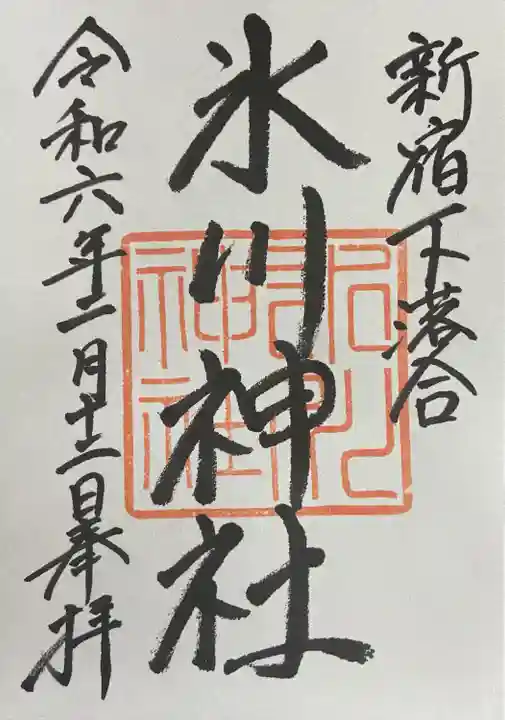 新宿下落合
氷川神社
令和六年二月十二日奉拝